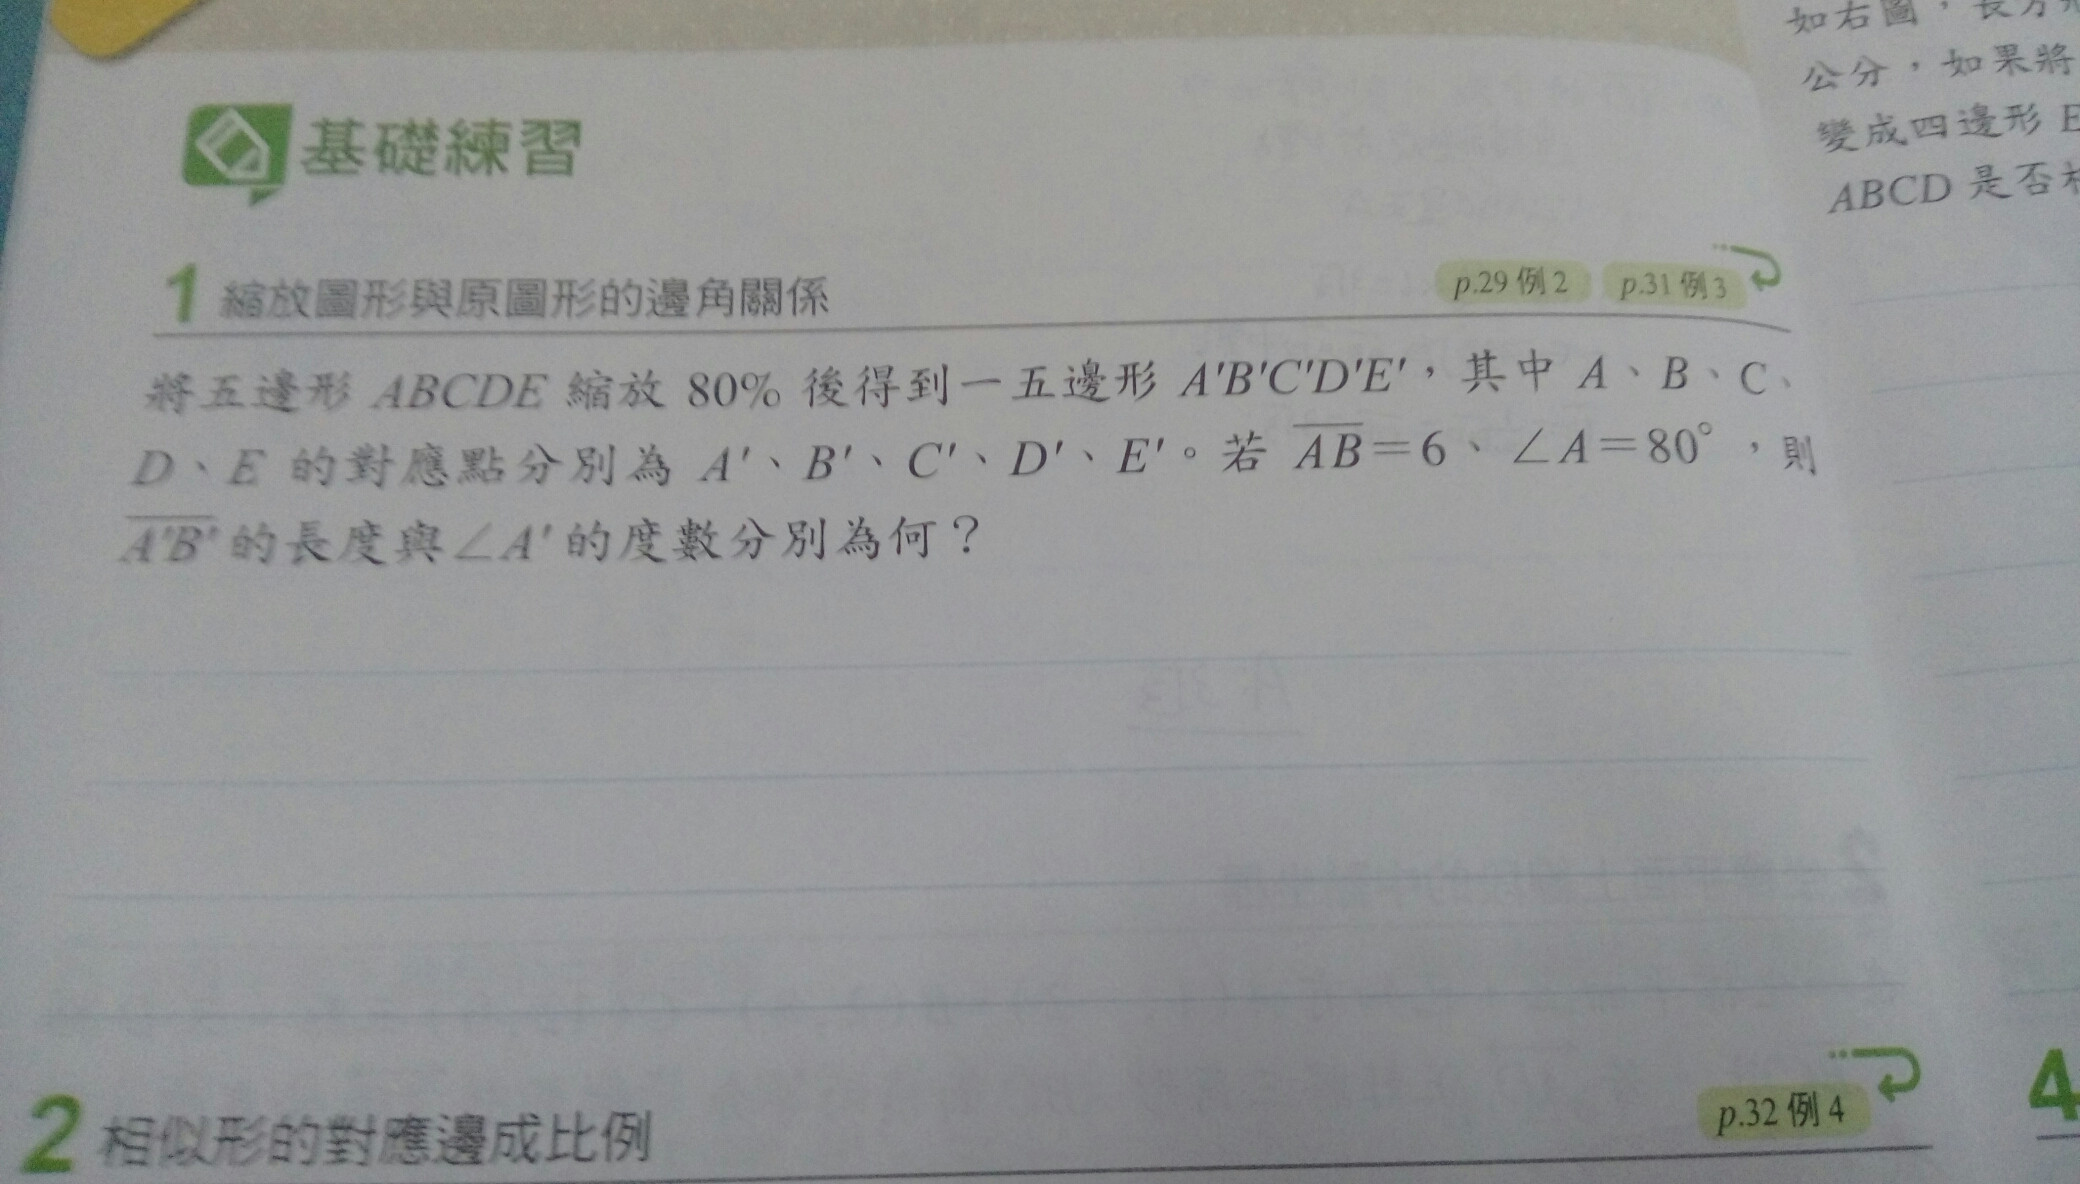 基礎練習
1 縮放圖形與原圖形的邊角關係 p.29 例 2 p.31 例 3
將五邊形 ABCDE 縮放 80% 後得到一五邊形 A'B'C'D'E'，其中 A、B、C、
D、E 的對應點分別為 A'、B'、C'、D'、E'。若 AB=6、∠A=80°，則
A'B' 的長度與∠A' 的度數分別為何？
2 相似形的對應邊成比例 p.32 例 4
如右圖，長方
公分，如果將
變成四邊形 E
ABCD 是否
4